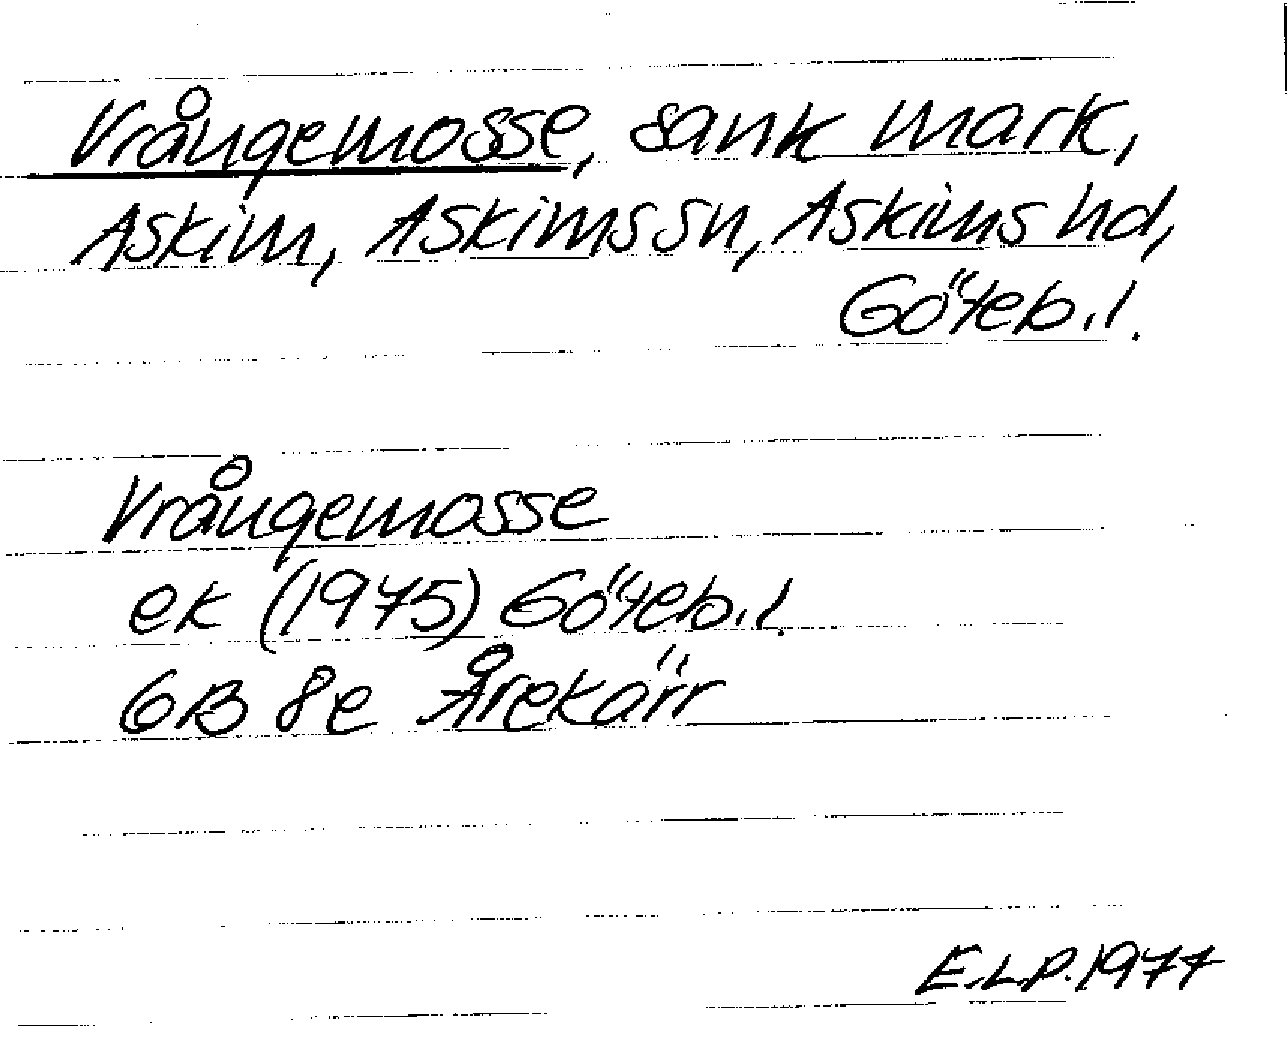 Vrångemosse, sank mark,
Askim, Askims sn, Askims hd,
Göteb. l.
Vrångemosse
ek (1975) Göteb. l.
6B 8e Årekärr
E.L.P. 1977